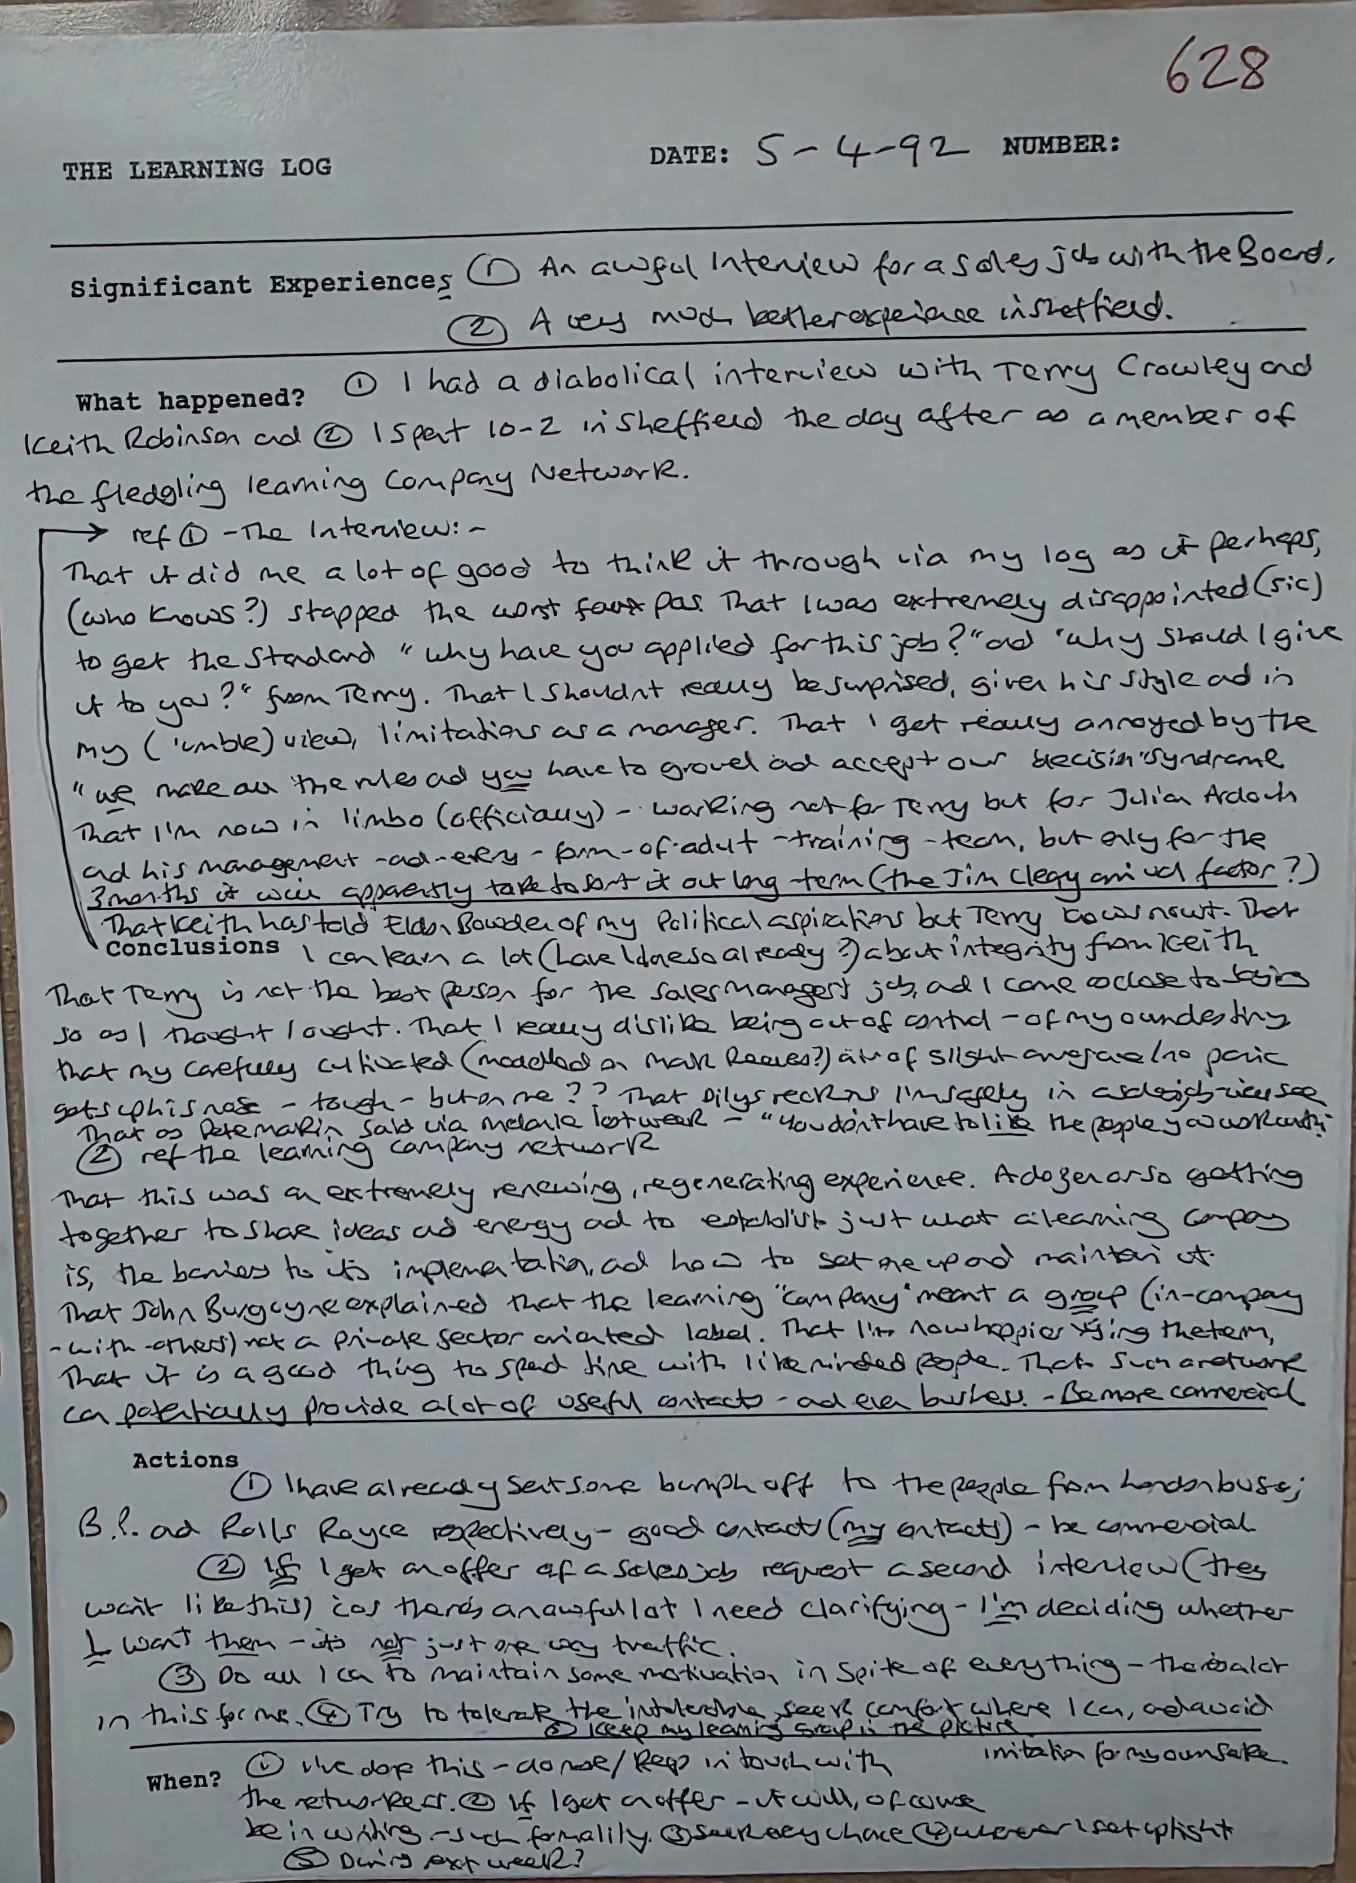 628
THE LEARNING LOG DATE: 5-4-92 NUMBER:
Significant Experiences ① An awful Interview for a sales job with the Board.
② A very much better experience in Sheffield.
What happened? ① I had a diabolical interview with Terry Crowley and
Keith Robinson and ② I spent 10-2 in Sheffield the day after as a member of
the fledgling learning Company Network.
→ ref ① - The Interview:-
That it did me a lot of good to think it through via my log as it perhaps,
(who knows?) stopped the worst faux pas. That I was extremely disappointed (sic)
to get the standard "why have you applied for this job?" and "why should I give
it to you?" from Terry. That I shouldnt really be surprised, given his style and in
my ('umble) view, limitations as a manager. That I get really annoyed by the
"we make all the rules and you have to grovel and accept our decision" syndrome
That I'm now in limbo (officially) - working not for Terry but for Julian Ardoch
and his management-and-every-form-of-adult-training-team, but only for the
3 months it will apparently take to sort it out long-term (the Jim Clegg arrival factor?)
That Keith has told Eldon Bowden of my Political aspirations but Terry knows nowt. That
Conclusions I can learn a lot (have I done so already?) about integrity from Keith
That Terry is not the best person for the Sales Managers job, and I came as close to saying
so as I thought I ought. That I really dislike being out of control - of my own destiny
that my carefully cultivated (modelled on Mark Reeves?) air of slight arrogance/no panic
gets up his nose - tough - but on me?? That Dilys reckons I'm safely in a sales job - we'll see
That as Pete Makin said via Melanie last week - "You don't have to like the people you work with"
② ref the learning company network
That this was an extremely renewing, regenerating experience. A dozen or so getting
together to share ideas and energy and to establish just what a learning company
is, the barriers to its implementation, and how to set one up and maintain it.
That John Burgoyne explained that the learning "company" meant a group (in-company
-with-others) not a private sector oriented label. That I'm now happier using the term,
That it is a good thing to spend time with like minded people. That such a network
can potentially provide a lot of useful contacts - and even business. - Be more commercial
Actions
① I have already sent some bumph off to the people from London buses;
B.P. and Rolls Royce respectively - good contacts (my contacts) - be commercial
② If I get an offer of a sales job request a second interview (they
won't like this) cos there's an awful lot I need clarifying - I'm deciding whether
I want them - its not just one way traffic.
③ Do all I can to maintain some motivation in spite of everything - there's a lot
in this for me. ④ Try to tolerate the intolerable, seek comfort where I can, and avoid
⑤ Keep my learning group in the picture
irritation for my own sake.
When? ① I've done this - do more/keep in touch with
the networkers. ② If I get an offer - it will, of course
be in writing - such formality. ③ Seek every chance ④ whenever I get uptight
⑤ During next week?